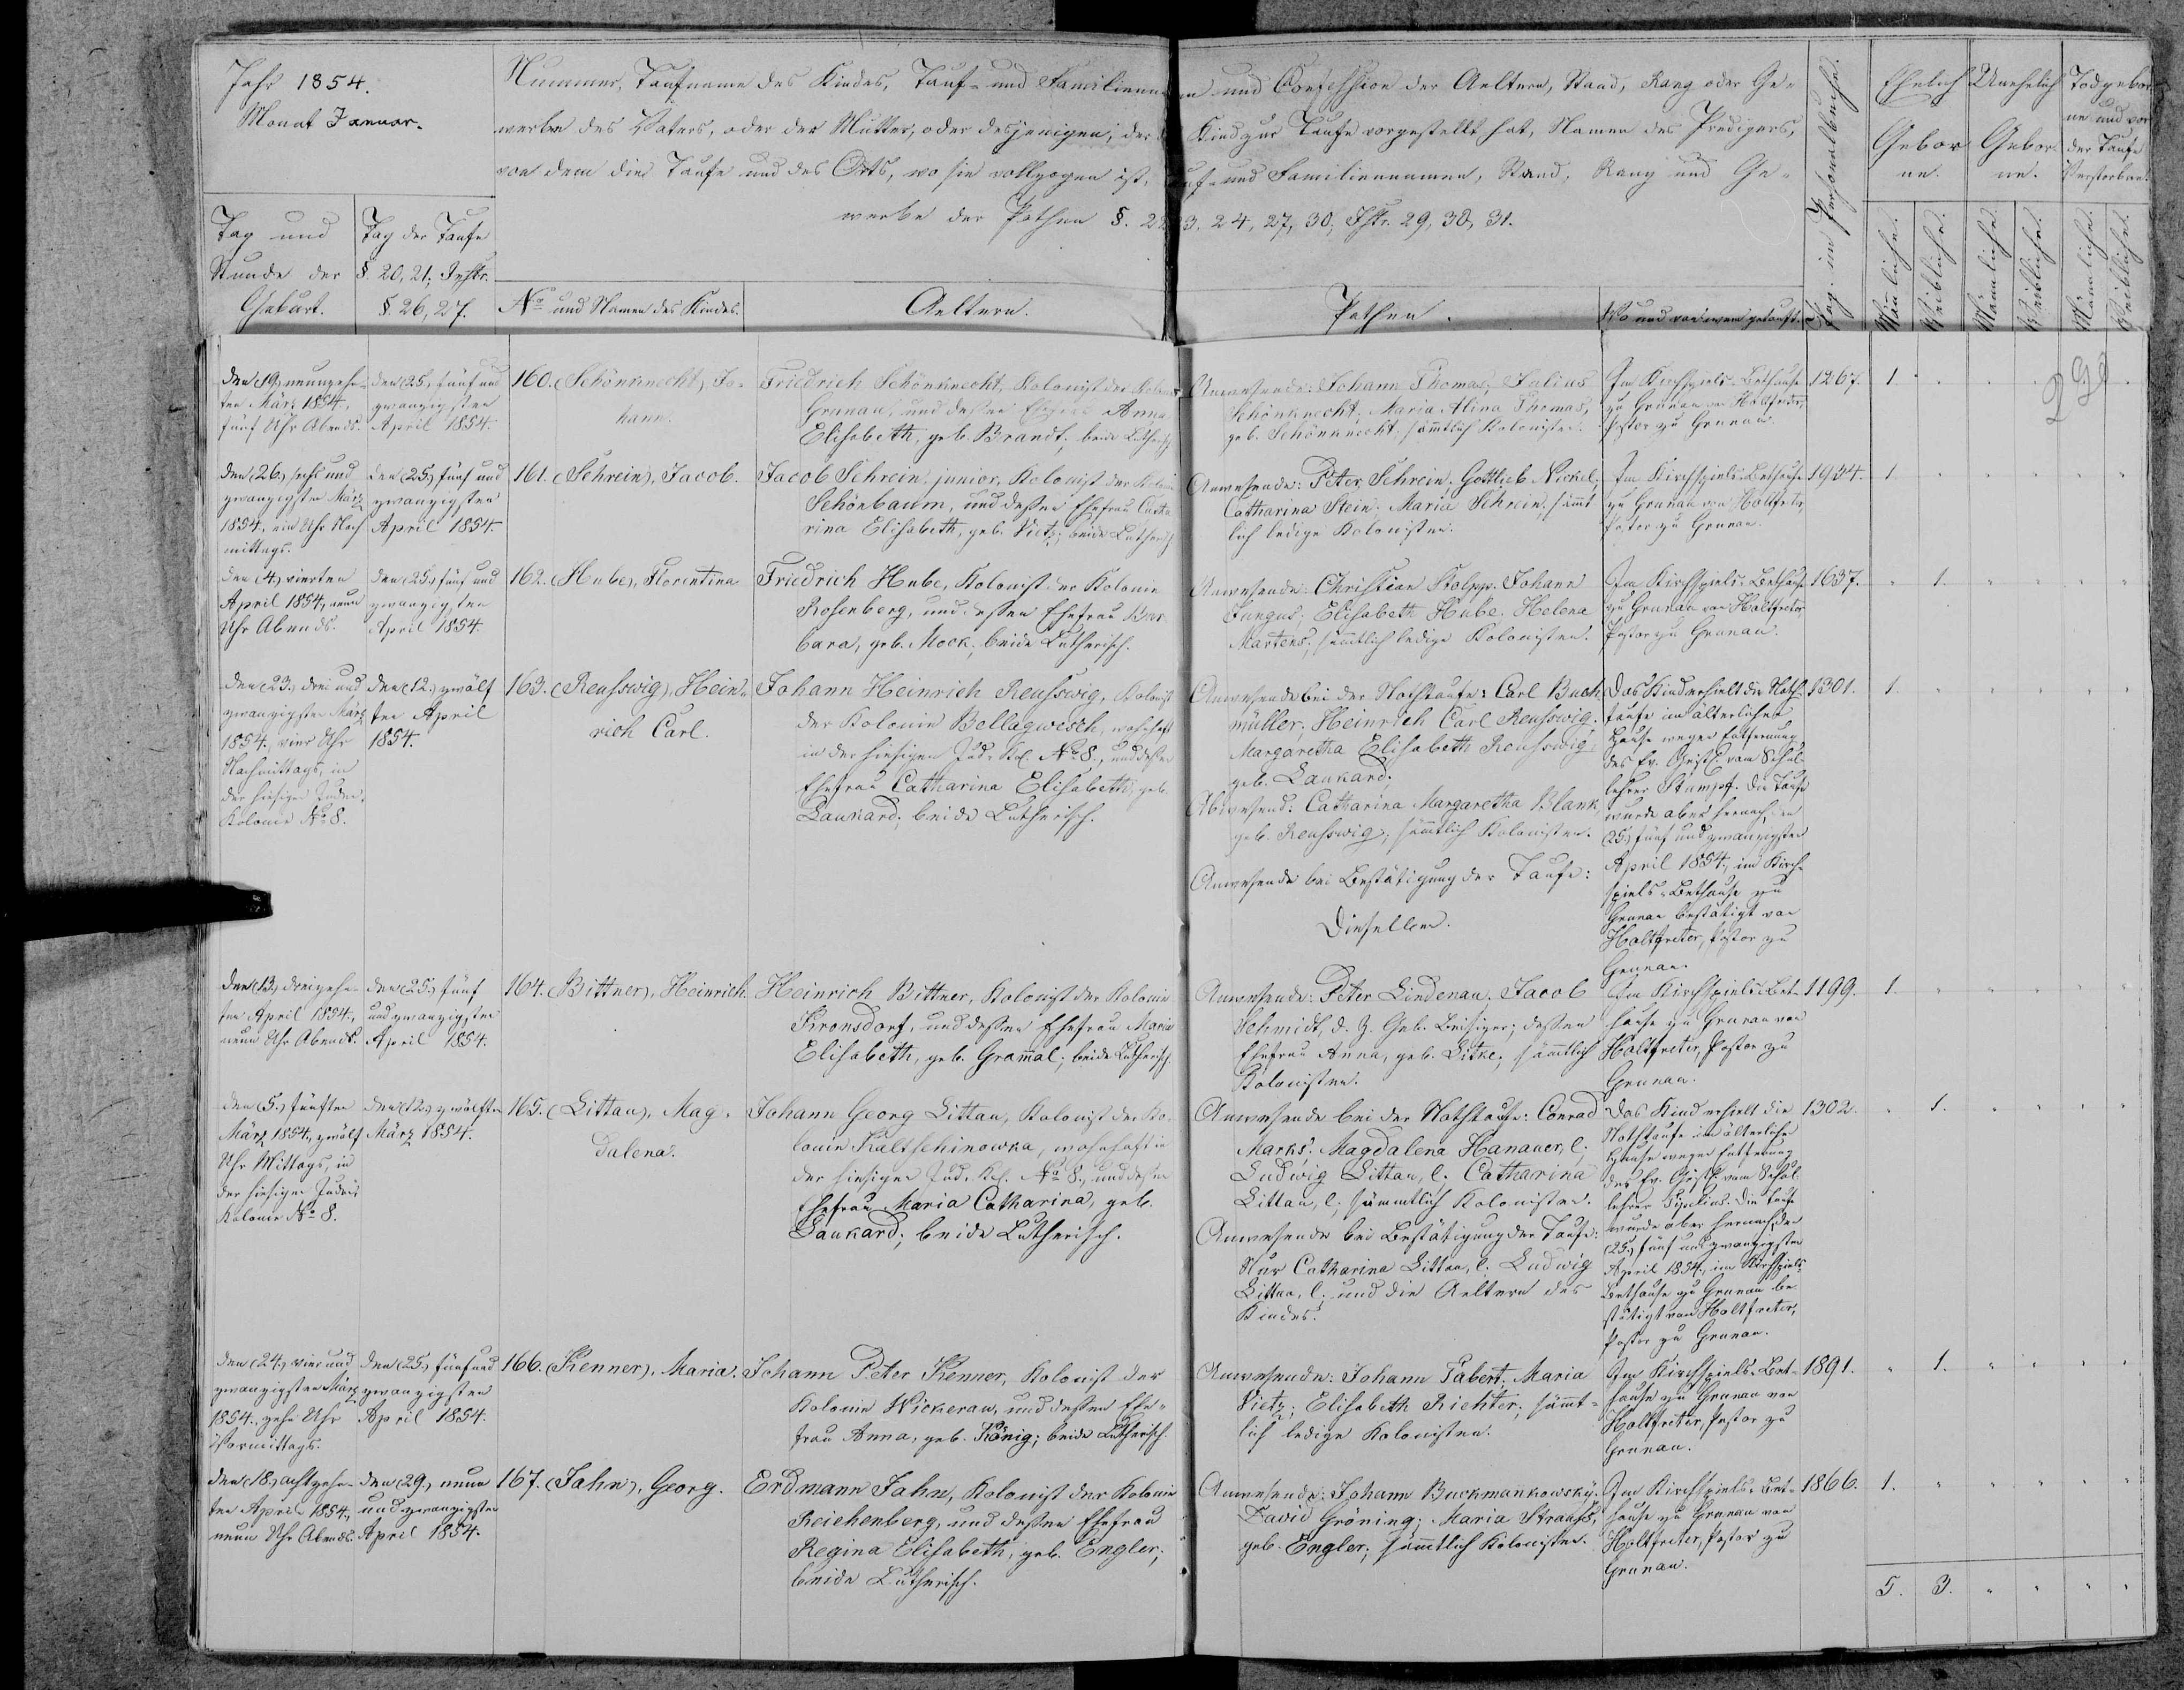 Jahr 1854.
Monat Januar.
Nummer, Taufname des Kindes, Tauf- und Familienna
n und Confession der Aeltern, Stand, Rang oder Ge-
werbe des Vaters, oder der Mutter, oder desjenigen, der d
Kind zur Taufe vorgestellt hat, Namen des Predigers,
von dem die Taufe und des Orts, wo sie vollzogen ist,
auf- und Familiennamen, Stand, Rang und Ge-
werbe der Pathen §. 22
3, 24, 27, 30, Istr. 29, 30, 31.
Tag und
Stunde der
Geburt.
Tag der Taufe
§. 20, 21; Instr.
§. 26, 27.
No und Namen des Kindes.
Aeltern.
Pathen.
Wo und von wem getauft.
Pag. im Personalbuche.
Ehelich
Gebor
ne.
Unehelich
Gebor
ne.
Todgebor
ne und vor
der Taufe
Verstorben.
Männliche.
Weibliche.
Männliche.
Weibliche.
Männliche.
Weibliche.
den (19.) neunzehn-
ten März 1854.,
fünf Uhr Abends.
den (25.) fünf und
zwanzigsten
April 1854.
160. (Schönknecht), Jo-
hann.
Friedrich Schönknecht, Kolonist der Kolonie
Grunau, und dessen Ehefrau Anna
Elisabeth, geb. Brandt; beide Lutherisch
Anwesende: Johann Thomas; Julius
Schönknecht; Maria Alina Thomas,
geb. Schönknecht; sämtlich Kolonisten.
Im Kirchspiels-Bethause
zu Grunau von Holtfreter,
Pastor zu Grunau.
1267.
1.
den (26.) sechs und
zwanzigsten März
1854. ein Uhr Nach
mittags.
den (25.) fünf und
zwanzigsten
April 1854.
161. (Schrein), Jacob.
Jacob Schrein, junior, Kolonist der Kolonie
Schönbaum, und dessen Ehefrau Catha
rina Elisabeth, geb. Vietz; beide Lutherisch
Anwesende: Peter Schrein. Gottlieb Nickel;
Catharina Stein. Maria Schrein; sämt
lich ledige Kolonisten.
Im Kirchspiels-Bethause
zu Grunau von Holtfreter,
Pastor zu Grunau.
1934.
1.
den (4.) vierten
April 1854., neun
Uhr Abends.
den (25.) fünf und
zwanzigsten
April 1854.
162. (Hube), Florentina
Friedrich Hube, Kolonist der Kolonie
Rosenberg, und dessen Ehefrau Bar
bara, geb. Mock; beide Lutherisch.
Anwesende: Christian Kolpp. Johann
Jungus; Elisabeth Hube; Helena
Martens; sämtlich ledige Kolonisten.
Im Kirchspiels-Bethause
zu Grunau von Holtfreter,
Pastor zu Grunau.
1637.
1.
den (23.) drei und
zwanzigsten März
1854., vier Uhr
Nachmittags, in
der hiesigen Juden-
Kolonie No 8.
den (12.) zwölf
ten April
1854.
163. (Reusswig), Hein-
rich Carl.
Johann Heinrich Reusswig, Kolonist
der Kolonie Bellagwesch, wohnhaft
in der hiesigen Jud. Kol. No 8., und dessen
Ehefrau Catharina Elisabeth, geb.
Laukard; beide Lutherisch.
Anwesende bei der Nothtaufe: Carl Buch
müller; Heinrich Carl Reusswig.
Margaretha Elisabeth Reusswig
geb. Laukard;
Abwesend: Catharina Margaretha Blank,
geb. Reusswig; sämmtlich Kolonisten.
Anwesende bei Bestätigung der Taufe:
Dieselben.
Das Kind erhielt die Noth-
taufe im älterlichen
Hause wegen Entfernung
des Ev. Geistl. vom Schul-
lehrer Stumpf. Die Taufe
wurde aber hernach, den
(25.) fünf und zwanzigsten
April 1854., im Kirch-
spiels-Bethause zu
Grunau bestätigt von
Holtfreter, Pastor zu
Grunau.
1301.
1.
den (13.) dreizehn-
ten April 1854.,
neun Uhr Abends.
den (25.) fünf
und zwanzigsten
April 1854.
164. (Bittner), Heinrich.
Heinrich Bittner, Kolonist der Kolonie
Kronsdorf, und dessen Ehefrau Maria
Elisabeth, geb. Gramal; beide Lutherisch.
Anwesende: Peter Lindenau; Jacob
Schmidt, d. Z. Geb. Beisizer; dessen
Ehefrau Anna, geb. Litke; sämmtlich
Kolonisten.
Im Kirchspiels-Bet-
hause zu Grunau von
Holtfreter, Pastor zu
Grunau.
1199.
1.
den (5.) fünften
März 1854., zwölf
Uhr Mittags, in
der hiesigen Juden-
Kolonie No 8.
den (12.) zwölften
März 1854.
165. (Littau), Mag-
dalena.
Johann Georg Littau, Kolonist der Ko-
lonie Kaltschinowka, wohnhaft in
der hiesigen Jud. Kol. No 8., und dessen
Ehefrau Maria Catharina, geb.
Laukard; beide Lutherisch.
Anwesende bei der Nothtaufe: Conrad
Marks; Magdalena Hanauer, l;
Ludwig Littau, l; Catharina
Littau, l; sämmtlich Kolonisten.
Anwesende bei Bestätigung der Taufe:
Nur Catharina Littau, l. Ludwig
Littau, l; und die Aeltern des
Kindes.
Das Kind erhielt die
Nothtaufe im älterlichen
Hause wegen Entfernung
des Ev. Geistl. vom Schul
lehrer Die Taufe
wurde aber hernach, den
(25.) fünf und zwanzigsten
April 1854., im Kirchspiels-
Bethause zu Grunau be
stätigt von Holtfreter,
Pastor zu Grunau.
1302.
1.
den (24.) vier und
zwanzigsten März
1854., zehn Uhr
Vormittags.
den (25.) fünf und
zwanzigsten
April 1854.
166. (Kenner), Maria.
Johann Peter Kenner, Kolonist der
Kolonie Wickerau, und dessen Ehe-
frau Anna, geb. König; beide Lutherisch.
Anwesende: Johann Tabert; Maria
Vietz; Elisabeth Richter; sämmt-
lich ledige Kolonisten.
Im Kirchspiels-Bet-
hause zu Grunau von
Holtfreter, Pastor zu
Grunau.
1891.
1.
den (18.) achtzehn-
ten April 1854.,
neun Uhr Abends.
den (29.) neun
und zwanzigsten
April 1854.
167. (Jahn), Georg.
Erdmann Jahn, Kolonist der Kolonie
Reichenberg, und dessen Ehefrau
Regina Elisabeth, geb. Engler;
beide Lutherisch.
Anwesende: Johann Buckmankowsky.
David Gröning; Maria Strauss,
geb. Engler; sämmtlich Kolonisten.
Im Kirchspiels-Bet-
hause zu Grunau von
Holtfreter, Pastor zu
Grunau.
1866.
1.
5. 3.